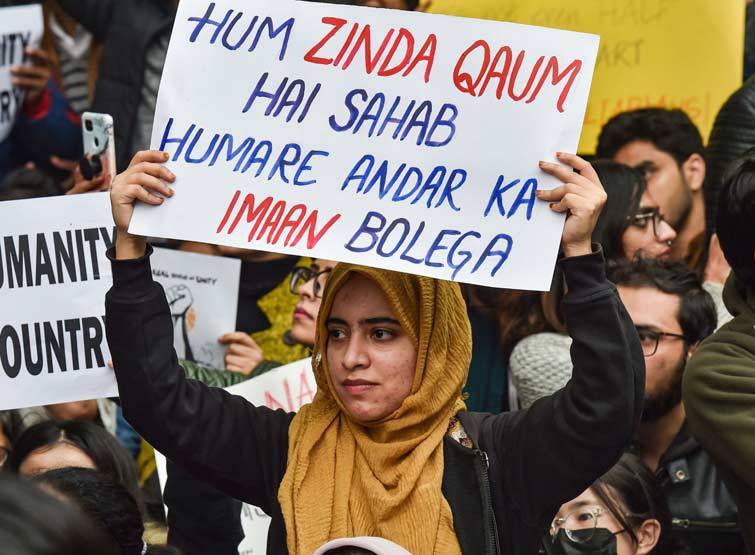 HUM ZINDA QAUM
HAI SAHAB
HUMARE ANDAR KA
IMAAN BOLEGA
UMANITY
OUNTRY
HALF
ART